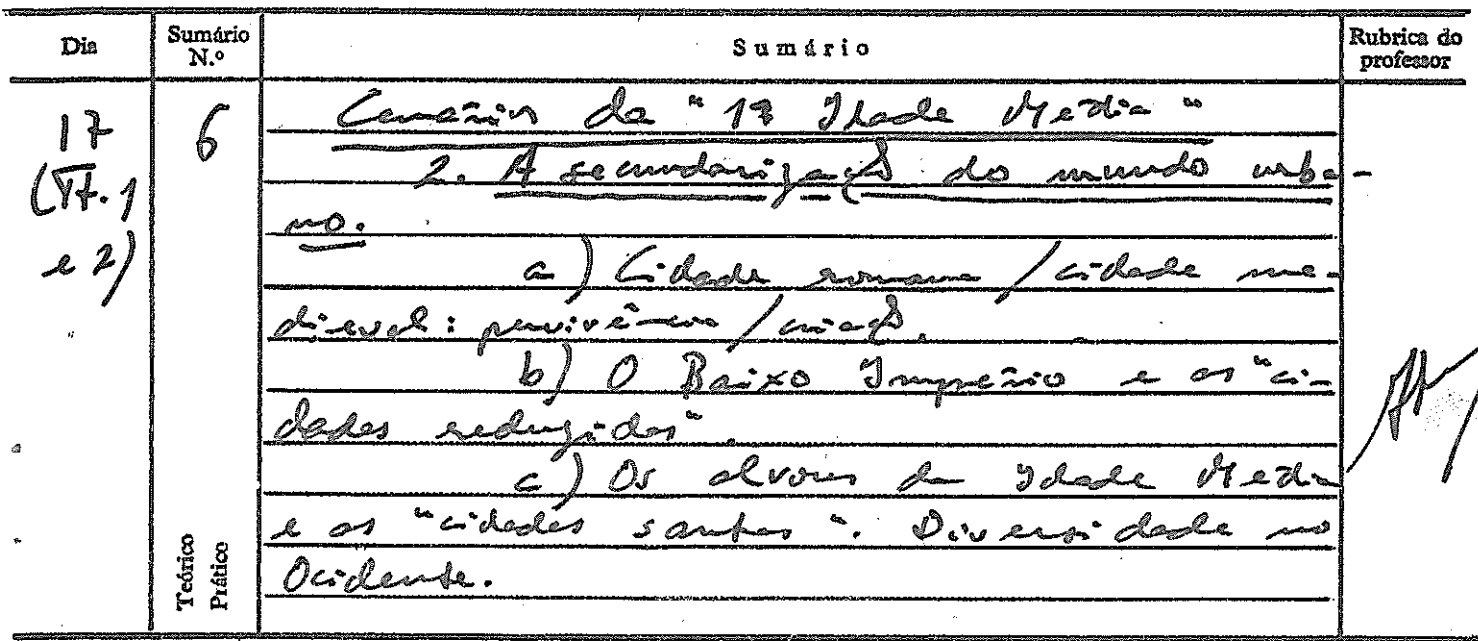 Dia
Sumário
N.º
Sumário
Rubrica do
professor
17
(Tt. 1
e 2)
6
Cenários da "1ª Idade Média"
2. A secundarização do mundo urba-
no.
a) Cidade romana / cidade me-
dieval: pervivência / criação.
b) O Baixo Império e as "ci-
dades reduzidas".
c) Os alvores da Idade Média
e as "cidades santas". Diversidade no
Ocidente.
Teórico
Prático